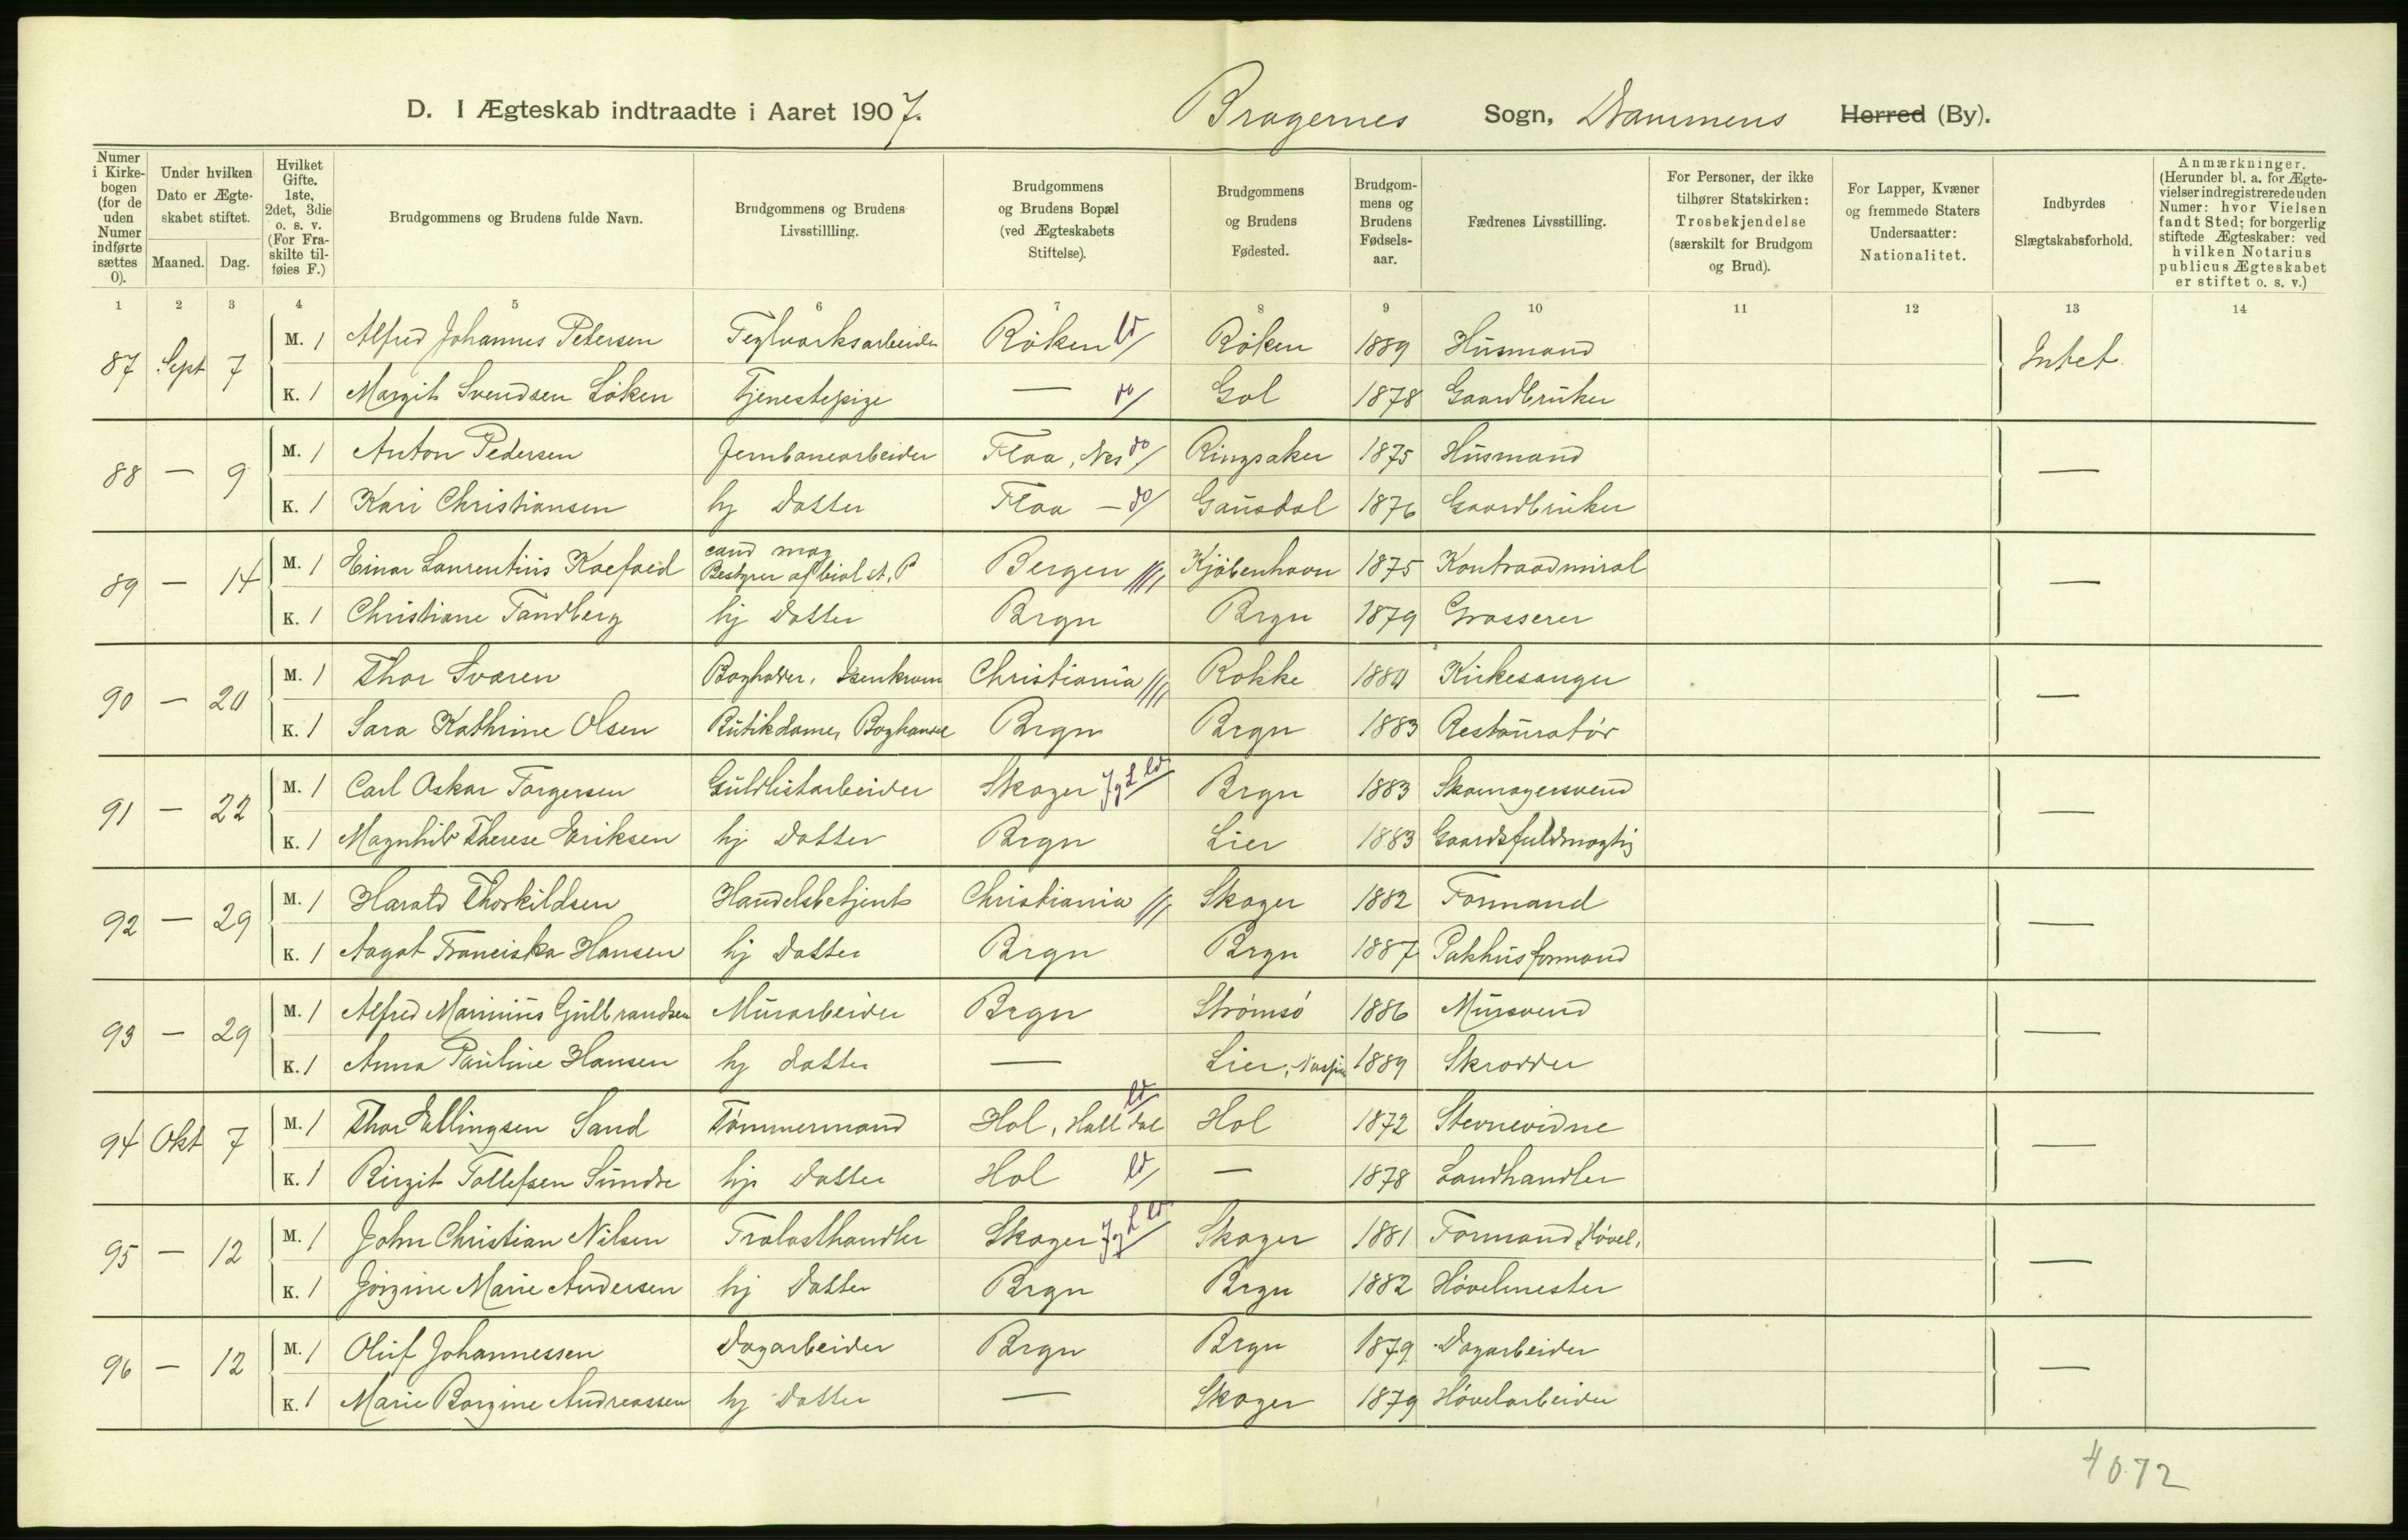 D. I Ægteskab indtraadte i Aaret 1907. Bragernes Sogn, Drammens Herred (By).
Numer i Kirkebogen (for de uden Numer indførte sættes 0).
Under hvilken Dato er Ægteskabet stiftet.
Maaned. Dag.
Hvilket Gifte. 1ste, 2det, 3die o. s. v. (For Fraskilte tilføies F.)
Brudgommens og Brudens fulde Navn.
Brudgommens og Brudens Livsstillling.
Brudgommens og Brudens Bopæl (ved Ægteskabets Stiftelse).
Brudgommens og Brudens Fødested.
Brudgommens og Brudens Fødselsaar.
Fædrenes Livsstilling.
For Personer, der ikke tilhører Statskirken: Trosbekjendelse (særskilt for Brudgom og Brud).
For Lapper, Kvæner og fremmede Staters Undersaatter: Nationalitet.
Indbyrdes Slægtskabsforhold.
Anmærkninger. (Herunder bl. a. for Ægtevielser indregistrerede uden Numer: hvor Vielsen fandt Sted; for borgerlig stiftede Ægteskaber: ved hvilken Notarius publicus Ægteskabet er stiftet o. s. v.)
1 2 3 4 5 6 7 8 9 10 11 12 13 14
87 Sept 7 M. 1 Alfred Johannes Petersen Teglværksarbeider Røken ld Røken 1889 Husmand Intet.
K. 1 Margit Svendsen Løken Tjenestepige — do Gol 1878 Gaardbruker
88 — 9 M. 1 Anton Pedersen Jernbanearbeider Flaa, Nes do Ringsaker 1875 Husmand —
K. 1 Kari Christiansen hj Datter Flaa — do Gausdal 1876 Gaardbruker
89 — 14 M. 1 Einar Laurentius Koefoed cand mag Bestyrer af biol st. Bergen Kjøbenhavn 1875 Kontraadmiral —
K. 1 Christiane Tandberg hj Datter Brgn Brgn 1879 Grosserer
90 — 20 M. 1 Thor Svaren Bogholder, Isenkram Christiania Rokke 1880 Kirkesanger —
K. 1 Sara Kathrine Olsen Butikdame, Boghandel Brgn Brgn 1883 Restauratør
91 — 22 M. 1 Carl Oskar Torgersen Guldlistarbeider Skoger ld Brgn 1883 Skomagersvend —
K. 1 Magnhild Therese Eriksen hj Datter Brgn Lier 1883 Gaardsfuldmægtig
92 — 29 M. 1 Harald Thorkildsen Handelsbetjent Christiania Skoger 1882 Formand —
K. 1 Aagot Franciska Hansen hj Datter Brgn Brgn 1887 Pakhusformand
93 — 29 M. 1 Alfred Marinius Gulbrandsen Murarbeider Brgn Strømsø 1886 Mursvend —
K. 1 Anna Pauline Hansen hj datter — Lier, 1889 Skrædder
94 Okt 7 M. 1 Thor Ellingsen Sand Tømmermand Hol, Halldal ld Hol 1872 Stevnevidne —
K. 1 Birgit Tollefsen Sundre hj Datter Hol ld — 1878 Landhandler
95 — 12 M. 1 John Christian Nilsen Trælasthandler Skoger ld Skoger 1881 Formand, Høvel. —
K. 1 Jørgine Marie Andersen hj Datter Brgn Brgn 1882 Høvelmester
96 — 12 M. 1 Oluf Johannessen Dagarbeider Brgn Brgn 1879 Dagarbeider —
K. 1 Marie Borgine Andreassen hj Datter — Skoger 1879 Høvelarbeider
4072